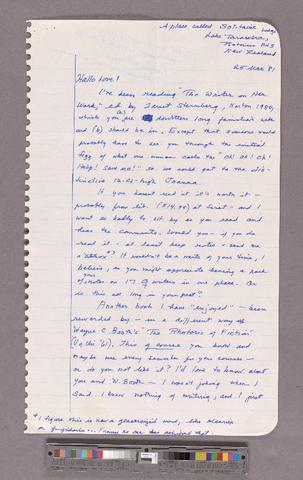 A place called Solitaire Lodge
Lake Tarawera,
Rotorua Rd 5
New Zealand
25 Mar 81
Hello Love!
I've been reading "The Writer on Her
Work," ed by Janet Sternburg, Norton 1980,
which you (a) are doubtless long familiar with
and (b) should be in. Except that someone would
probably have to see you through the initial
fog of what one woman calls the "Oh oh! Oh!
Help! Save me!" so we could get to the
If you haven't read it it's worth it —
probably from lib. ($14.95) at first — and I
want so badly to sit by as you read and
hear the comments. Would you — if you do
read it — at least keep notes — send me
a *? It wouldn't be a waste of your time, I
believe, as you might appreciate having a pack
of notes on 17 ♀ writers in one place. Or
is this all long in your past?
Another book I have "enjoyed" — been
rewarded by — in a different way is
Wayne C. Booth's "The Rhetoric of Fiction"
(U of Chi '61). This of course you know and
maybe use every semester for your courses —
or do you not like it? I'd love to know about
you and W. Booth — I wasn't joking when I
said I knew nothing of writing, and I just
* I figure this is now a generalized word, like kleenex
or frigidaire...